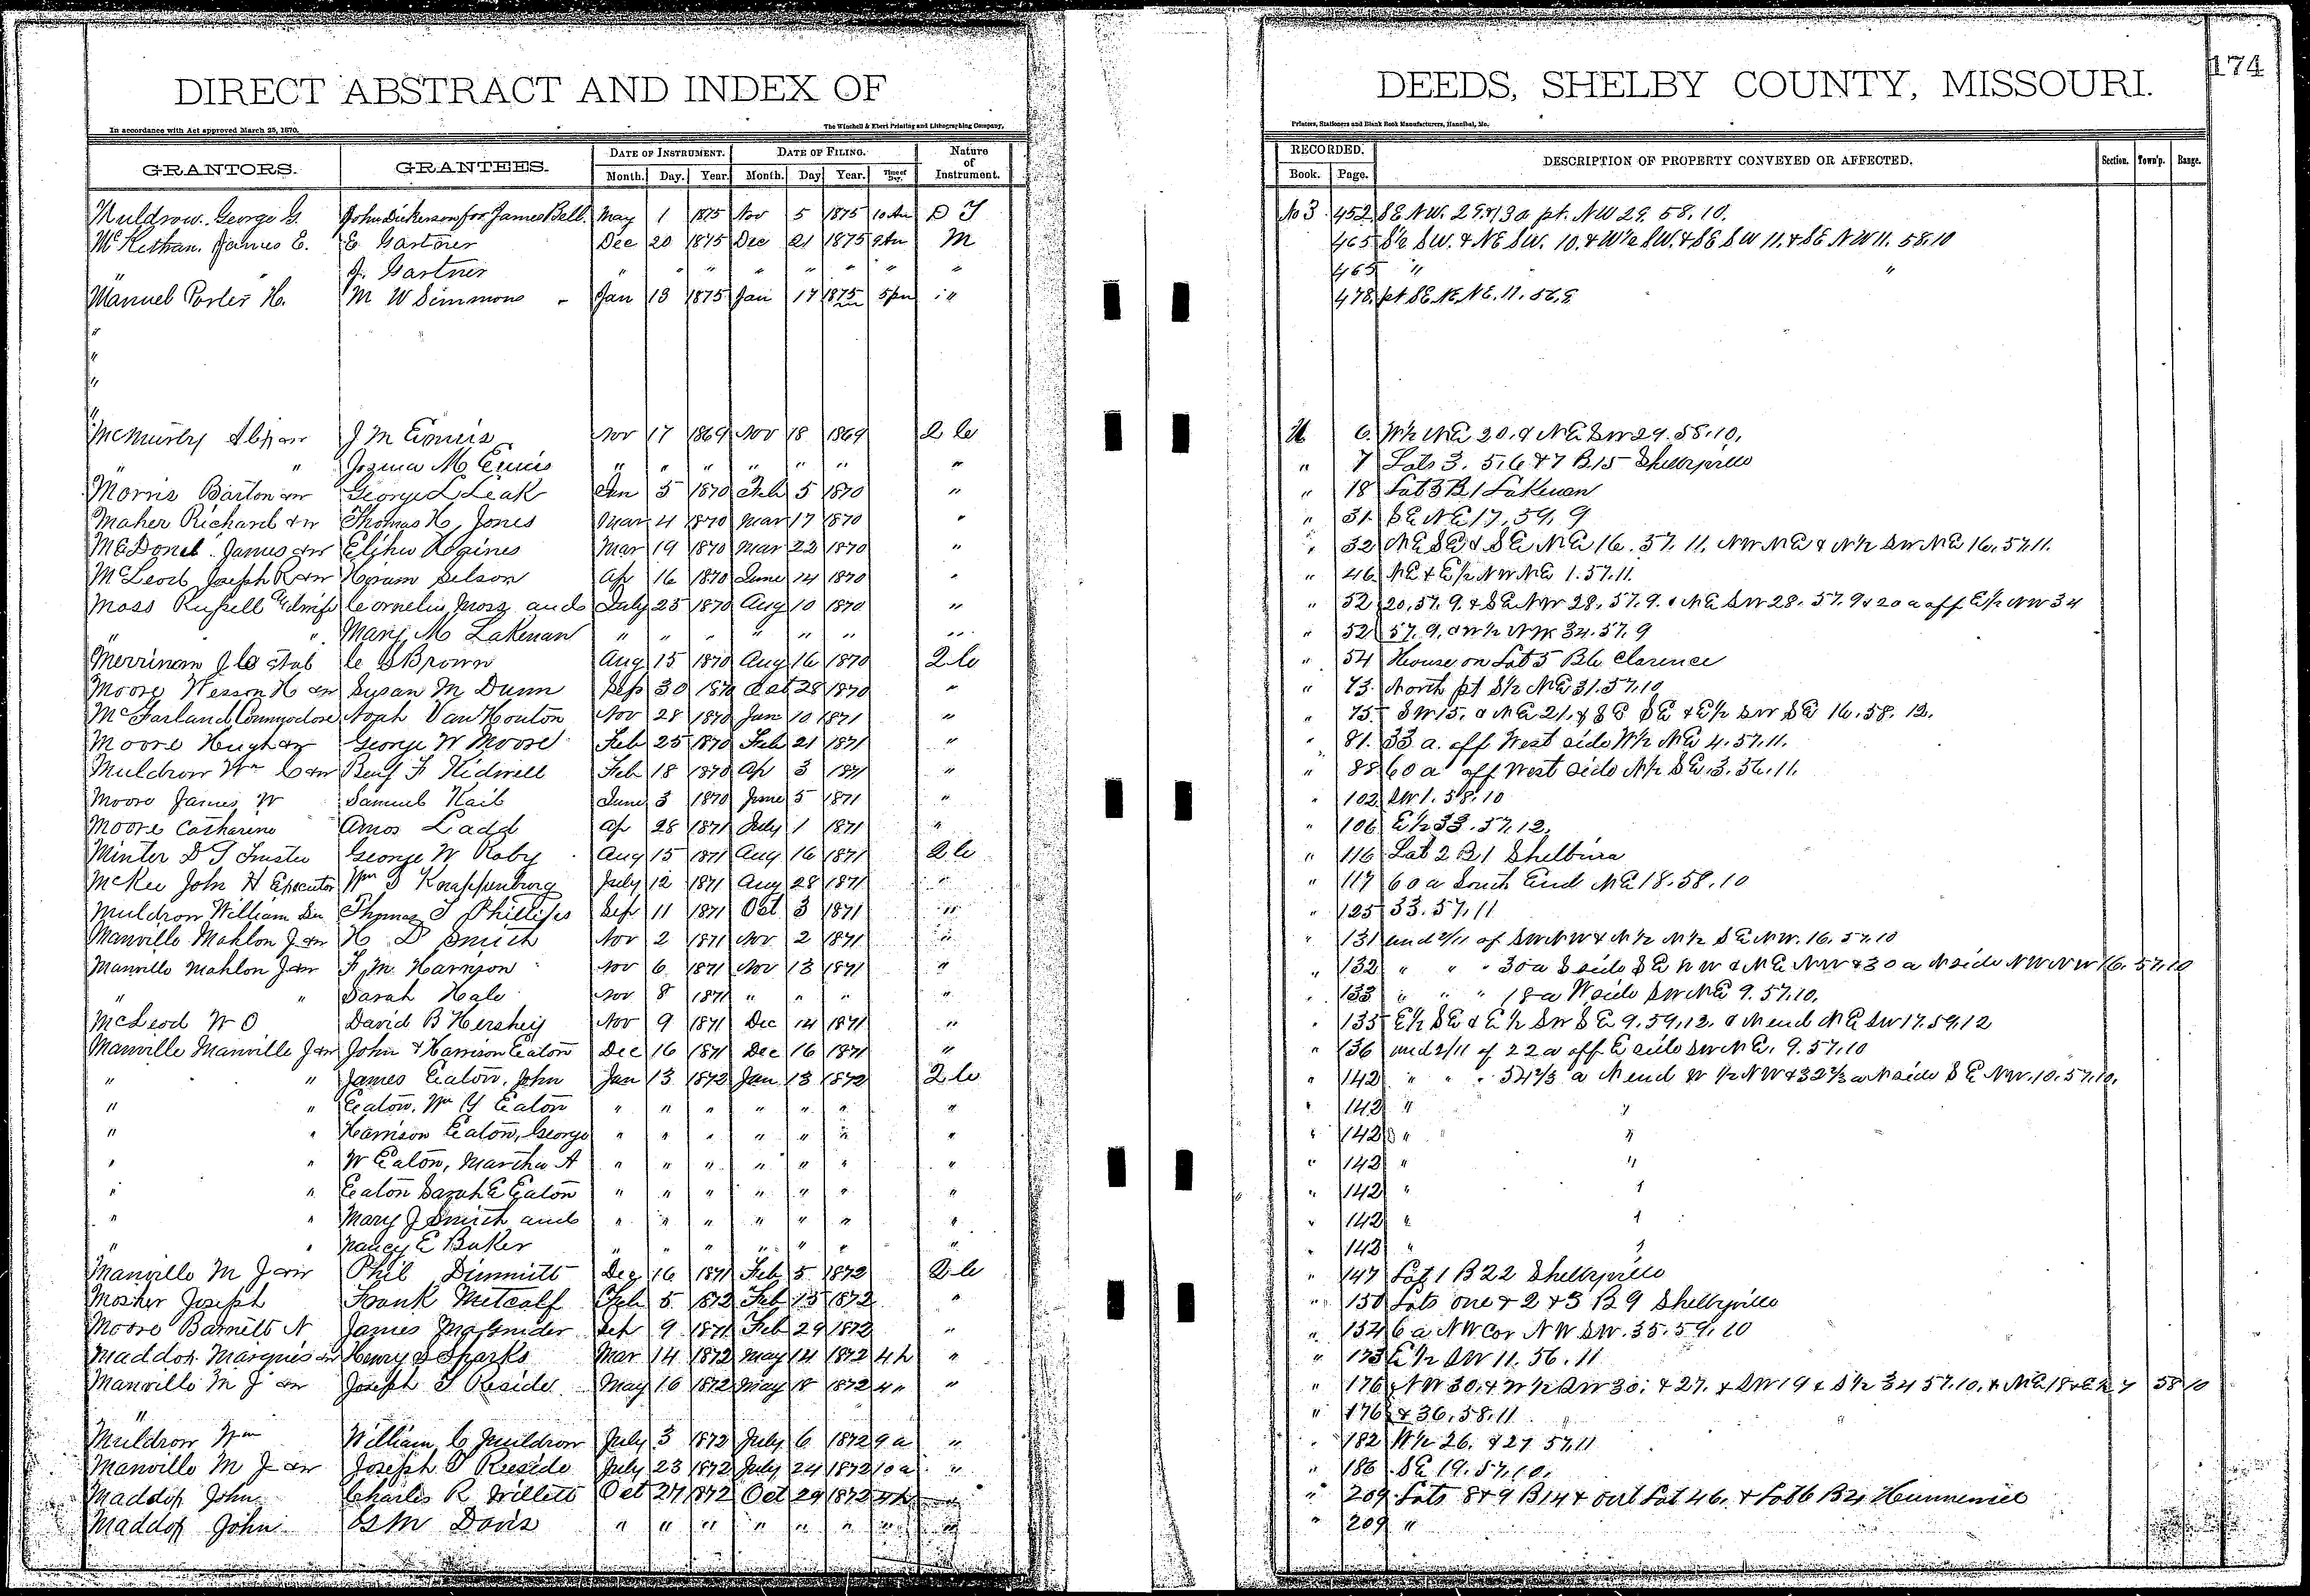 DIRECT ABSTRACT AND INDEX OF DEEDS, SHELBY COUNTY, MISSOURI. 174
In accordance with Act approved March 25, 1870. The Winchell & Ebert Printing and Lithographing Company, Printers, Stationers and Blank Book Manufacturers, Hannibal, Mo.
GRANTORS. GRANTEES. DATE OF INSTRUMENT. DATE OF FILING. Nature of Instrument. RECORDED. DESCRIPTION OF PROPERTY CONVEYED OR AFFECTED. Section. Town'p. Range.
Month. Day. Year. Month. Day Year. Time of Day. Book. Page.
Muldrow. George G. John Dickerson for James Bell. May 1 1875 Nov 5 1875 10 Am D T No 3 452 SE NW. 29. & 13 a pt. NW 29. 58. 10.
James E. E Gartner Dec 20 1875 Dec 21 1875 9 Am M 465 S½ SW. & NE SW. 10. & W½ SW. & SE SW 11. & SE NW 11. 58. 10
J. Gartner " " " " " " " " 465 " "
Manuel Porter H. M W Simmons Jan 13 1875 Jan 17 1875 5 pm " 478 pt SE NE NE. 11. 56. 9
"
"
"
"
McMurtry J M Ennis Nov 17 1869 Nov 18 1869 2 C U 6. W½ NE 20. & NE SW 29. 58. 10.
" " M Ennis " " " " " " " " 7 Lots 3. 5. 6 & 7 B. 15 Shelbyville
Morris Barton & w George L Leak Jan 5 1870 Feb 5 1870 " " 18 Lot 3 B 1 Lakenan
Maher Richard & w Thomas H Jones Mar 4 1870 Mar 17 1870 " " 31. SE NE 17. 59. 9
McDonel James & w Elihu Mar 19 1870 Mar 22 1870 " " 32 NE SE & SE NE 16. 57. 11. NW NE & N½ SW NE 16. 57. 11.
McLeod Joseph R & w Hiram Selson Ap 16 1870 June 14 1870 " " 46 NE & E½ NW NE 1. 57. 11.
Moss Russell & wife Cornelius Moss and July 25 1870 Aug 10 1870 " " 52 20. 57. 9. & SE NW 28. 57. 9. & NE SW 28. 57. 9 & 20 a off E½ NW 34
" " Mary M Lakenan " " " " " " " " 52 57. 9. & W½ NW 34. 57. 9
Merrinam J C C S Brown Aug 15 1870 Aug 16 1870 2 C " 54 House on Lot 5 B 6 Clarence
Moore Wesson H & w Susan M Dunn Sep 30 1870 Oct 28 1870 " " 73. North pt S½ NE 31. 57. 10
McFarland Commodore Noah Van Houton Nov 28 1870 Jan 10 1871 " " 75. SW 15. & NE 21. & SE SE & E½ SW SE 16. 58. 12.
Moore Hugh & w George W Moore Feb 25 1870 Feb 21 1871 " " 81. 33 a. off West side W½ NE 4. 57. 11.
Muldrow Wm C & w Benj F Kidwell Feb 18 1870 Ap 3 1871 " " 88 60 a off West side N½ SE. 3. 56. 11.
Moore James W Samuel Kail June 3 1870 June 5 1871 " " 102 SW 1. 58. 10
Moore Catharine Amos Ladd Ap 28 1871 July 1 1871 " " 106 E½ 33. 57. 12.
Minter D T Trustee George W Roby Aug 15 1871 Aug 16 1871 2 C " 116 Lot 2 B 1 Shelbina
McKee John H Executor Wm S Knappenburg July 12 1871 Aug 28 1871 " " 117 60 a South End NE 18. 58. 10
Muldrow William Sen Thomas T Phillips Sep 11 1871 Oct 3 1871 " " 125 33. 57. 11
Manville Mahlon J & w H D Smith Nov 2 1871 Nov 2 1871 " " 131 und 2/11 of SW NW & N½ N½ SE NW. 16. 57. 10
Manville Mahlon J & w F M Harrison Nov 6 1871 Nov 13 1871 " " 132 " " " 30 a S side SE NW & NE NW & 30 a N side NW NW 16. 57. 10
" " Sarah Hale Nov 8 1871 " " " " " 133 " " " 18 a W side SW NE 9. 57. 10.
McLeod W O David B Hershey Nov 9 1871 Dec 14 1871 " " 135 E½ SE & E½ SW SE 9. 59. 12. & N end NE SW 17. 59. 12
Manville Manville J & w John & Harrison Eaton Dec 16 1871 Dec 16 1871 " " 136 und 2/11 of 22 a off E side SW NE. 9. 57. 10
" " James Eaton, John Jan 13 1872 Jan 13 1872 2 C " 142 " " " 54⅔ a N end W ½ NW & 32⅔ a N side SE NW. 10. 57. 10.
" " Eaton, Wm Y Eaton " " " " " " " " 142 " "
" " Harrison Eaton, George " " " " " " " " 142 " "
" " W Eaton, Martha A " " " " " " " " 142 " "
" " Eaton Sarah E Eaton " " " " " " " " 142 " "
" " Mary J Smith and " " " " " " " " 142 " "
" " Nancy E Baker " " " " " " " " 142 " "
Manville M J & w Phil Dimmitt Dec 16 1871 Feb 5 1872 2 C " 147 Lot 1 B 22 Shelbyville
Mosher Joseph Frank Metcalf Feb 5 1872 Feb 15 1872 " " 150 Lots one & 2 & 3 B 9 Shelbyville
Moore Barnett N James Magruder Sep 9 1871 Feb 29 1872 " " 154 6 a NW Cor NW SW. 35. 59. 10
Maddox Marquis & w Henry S Sparks Mar 14 1872 May 14 1872 4 h " " 173 E½ SW 11. 56. 11
Manville M J & w Joseph T Reside May 16 1872 May 18 1872 4 " " " 176 NW 30. & W½ SW 30. & 27. & SW 19 & S½ 34 57. 10. & NE 18 & E½ 7 58 10
" " 176 & 36. 58. 11
Muldrow Wm William C Muldrow July 3 1872 July 6 1872 9 a " " 182 W½ 26. & 27 57. 11
Manville M J & w Joseph T Reeside July 23 1872 July 24 1872 10 a " " 186 SE 19. 57. 10.
Maddox John Charles R Willett Oct 27 1872 Oct 29 1872 4 h " " 209 Lots 8 & 9 B 14 & out Lot 46. & Lot 6 B 4 Hunnewell
Maddox John M Davis " " " " " " " " " 209 "